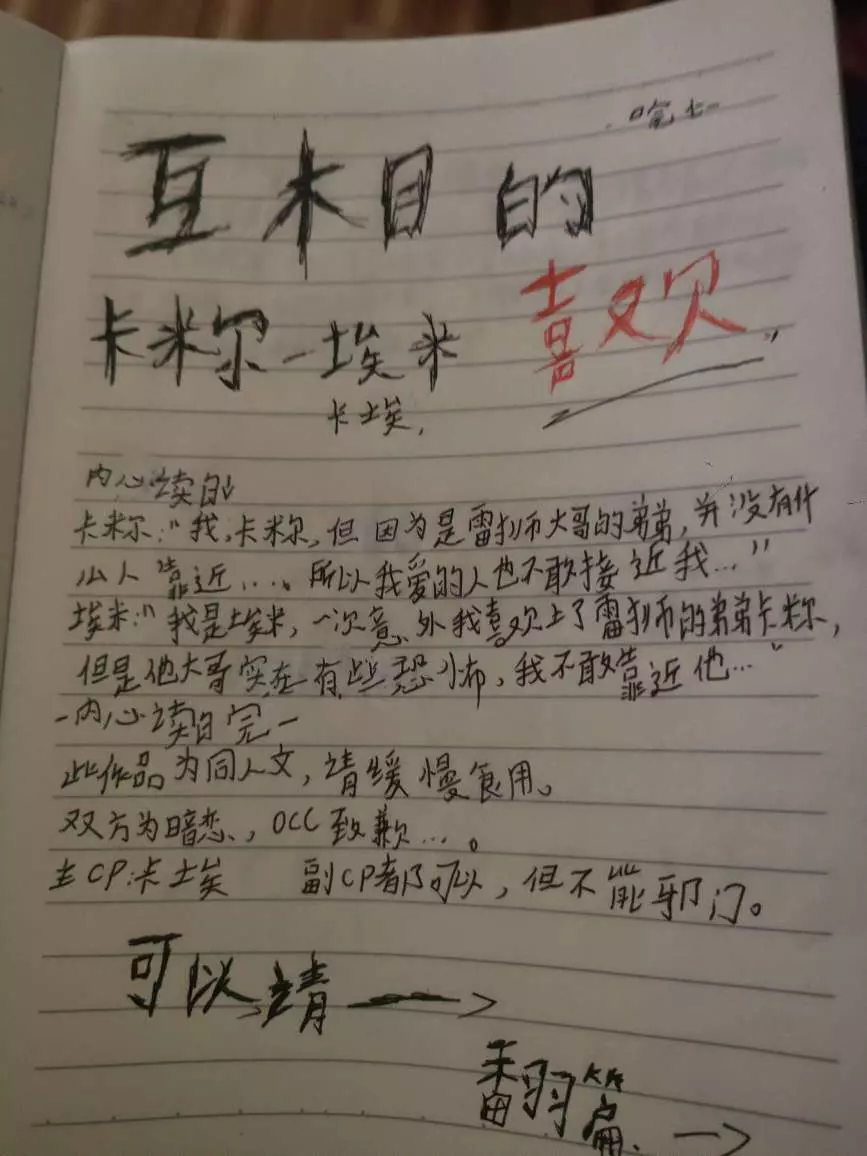 互相的
喜欢
卡米尔-埃米
卡埃.
内心读白
卡米尔:"我,卡米尔,但因为是雷狮大哥的弟弟,并没有什
么人靠近....。所以我爱的人也不敢接近我..."
埃米:"我是埃米,一次意外我喜欢上了雷狮的弟弟卡米尔,
但是他大哥实在有些恐怖,我不敢靠近他..."
-内心读白完-
此作品为同人文,请缓慢食用。
双方为暗恋,OCC致歉...。
主CP:卡埃 副CP都可以,但不能邪门。
可以请→
翻篇.→